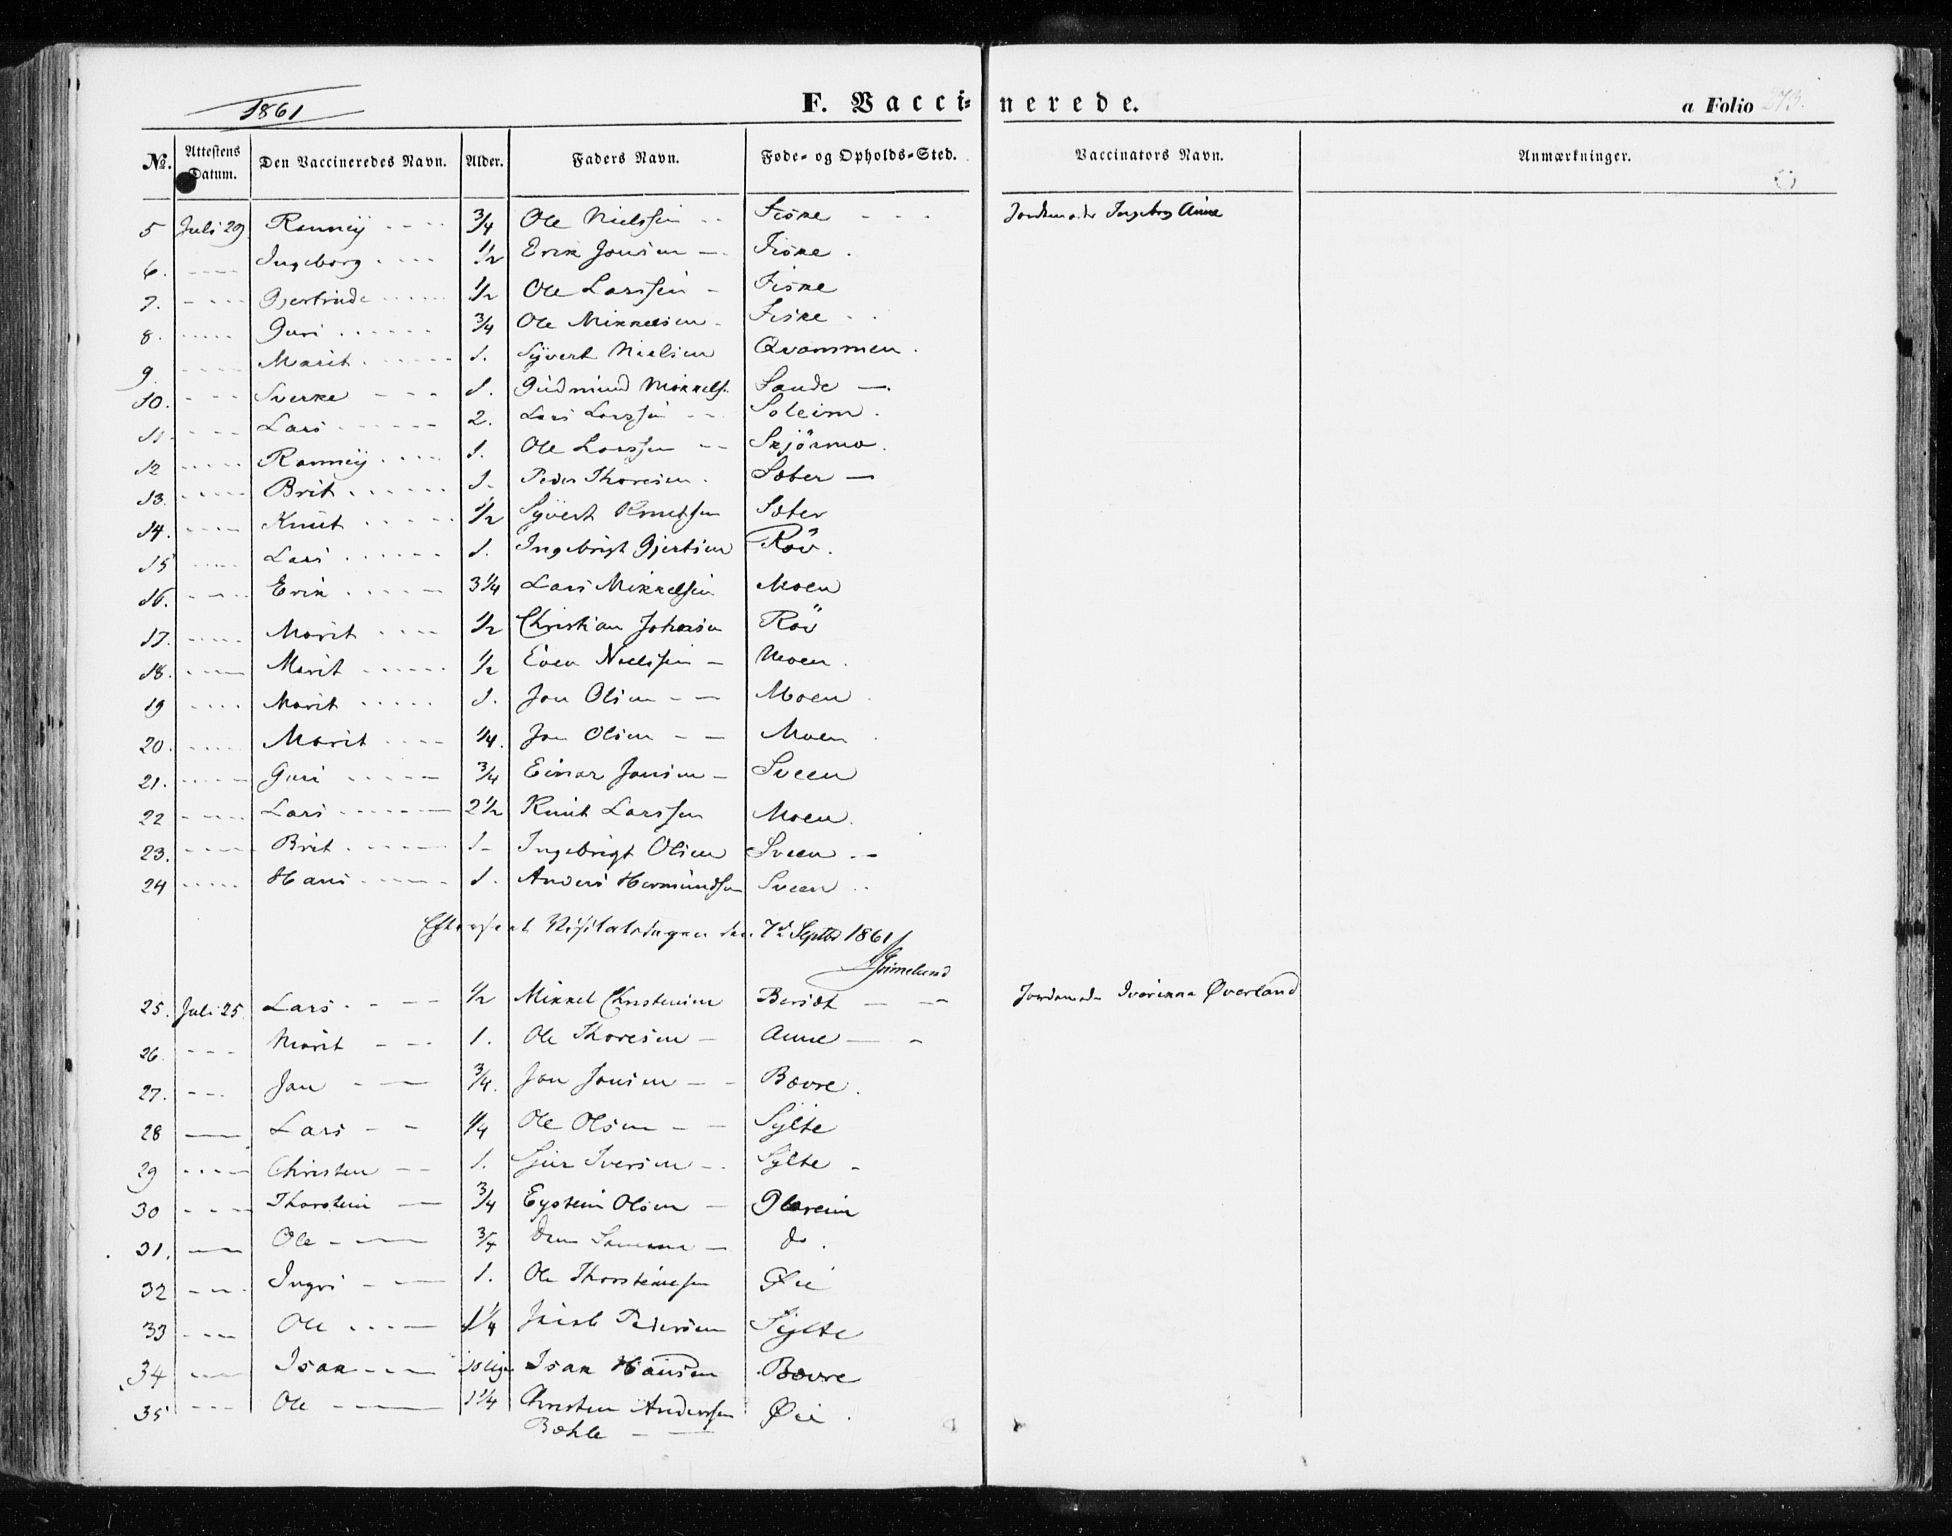 1861
F. Vaccinerede.
a Folio 273.
No. Attestens Datum. Den Vaccineredes Navn. Alder. Faders Navn. Føde- og Opholds-Sted. Vaccinators Navn. Anmærkninger.
5 Juli 29. Ranneÿ 3/4 Ole Nielssen Fiske Jordemoder Ingeborg Aune
6. Ingeborg 1/2 Erik Jonsen Fiske
7. Gjertrude 1/2 Ole Larssen Fiske
8. Guri 3/4 Ole Mikkelsen Fiske
9. Marit 1. Syvert Nielsen Qvammen
10. Sverke 1. Gudmund Mikkels. Sande
11. Lars 2. Lars Larssen Soleim
12 Ranneÿ 1. Ole Larssen Skjörmo
13. Brit 1. Peder Thoresen Sæter
14. Knut 1/2 Syvert Knutsen Sæter
15 Lars 1. Ingebrigt Gjertsen Röv.
16. Erik 3 1/4 Lars Mikkelsen Moen
17. Marit 1/2 Christian Johnsen Röv
18. Marit 1/2 Even Nielssen Moen
19 Marit 1. Jon Olsen Moen
20. Marit 1/4. Jon Olsen Moen
21. Guri 3/4 Einar Jonsen Sveen
22 Lars 2 1/2 Knut Larssen Moen
23. Brit 1 Ingebrigt Olsen Sveen
24 Hans 1. Anders Hermundsen Sveen
Efterseet Visitatsdagen den 7de Septbr 1861
Grimelund
25. Juli 25. Lars 1/2 Mikkel Christensen Bersæt Jordemoder Iverinna Øverland
26. Marit 1. Ole Thoresen Aune
27. Jon 3/4. Jon Jonsen Bævre
28 Lars 1/4 Ole Olsen Sÿlte
29 Christen 1. Siur Iversen Sÿlte
30 Thorstein 3/4 Eystein Olsen Glæreim
31. Ole 3/4 Den Samme do.
32 Ingri 1. Ole Thorsteinsen Øie
33 Ole 1 1/4 Jacob Pedersen Sÿlte
34 Isak Isak Hansen Bævre
35 Ole 1 1/4 Christen Anderssen Øie
Bæhle